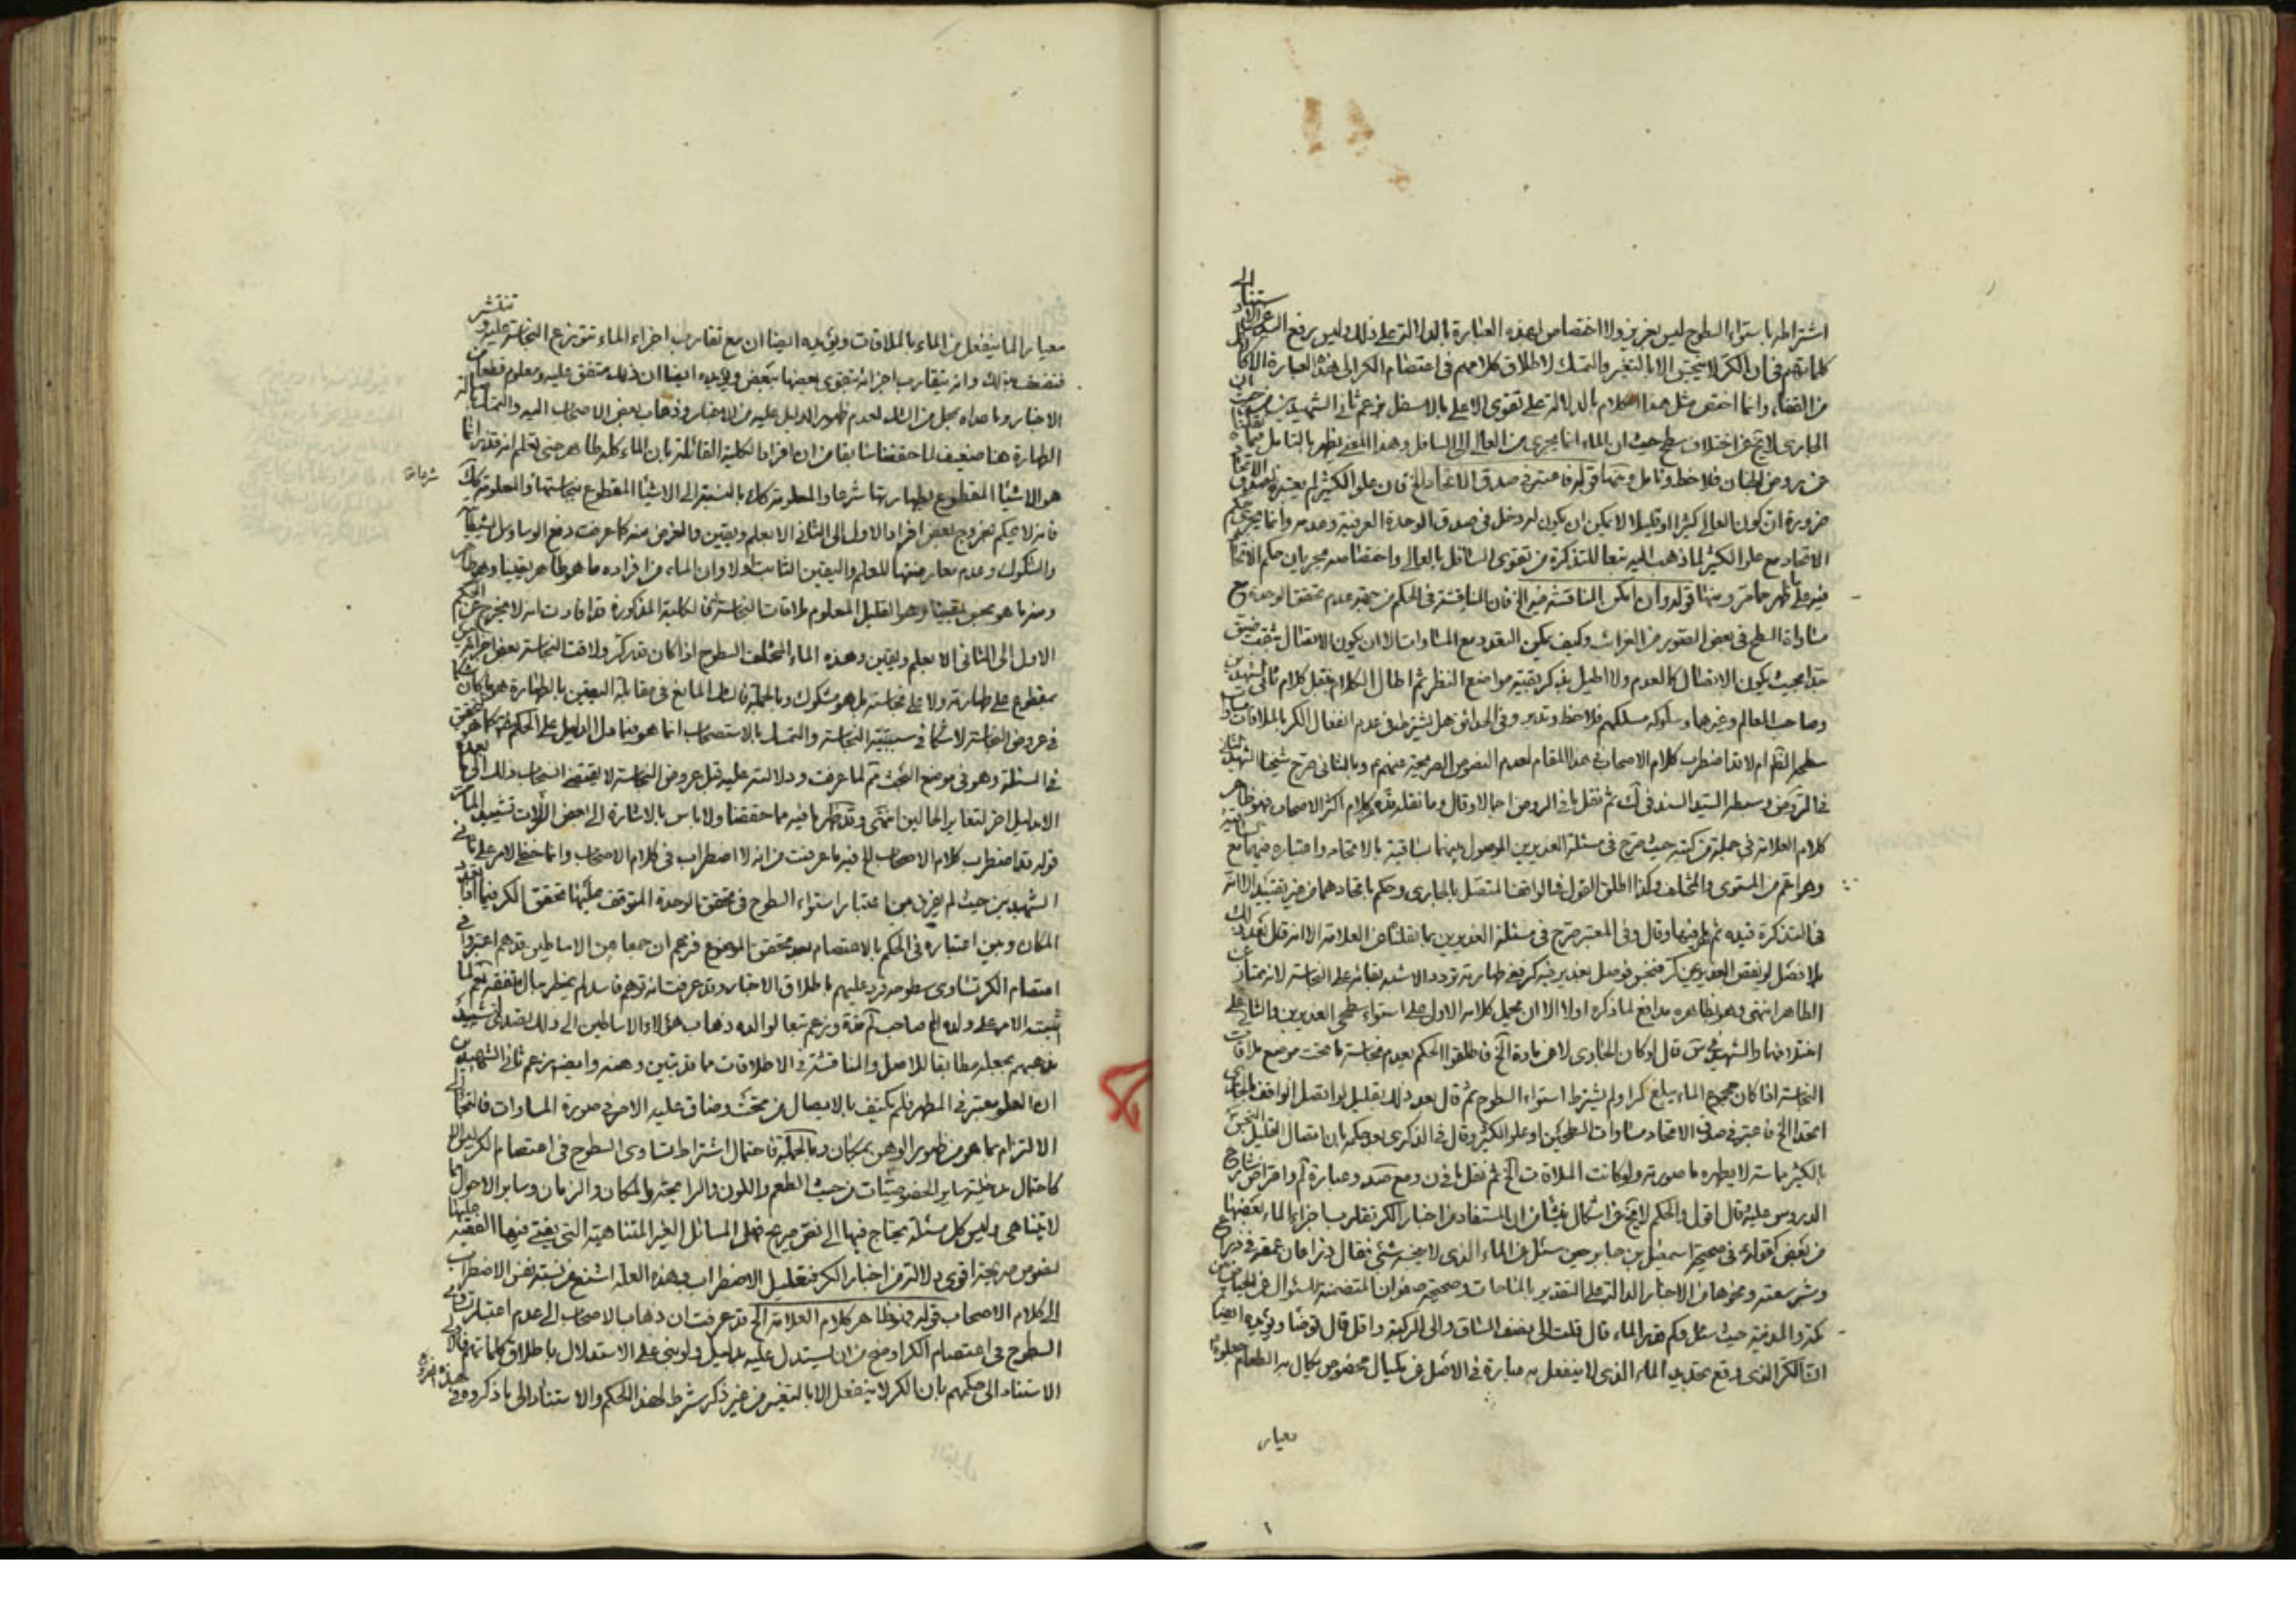 اشتراطه باستواء السطوح ليس بعزيز ولا اختصاص لهذه العبارة بالدلالة على ذلك وليس برفع اليد عن الاستناد الى
كلماتهم في ان الكر لا ينجس الا بالتغير والتمسك لاطلاق كلامهم في اعتصام الكر الى هذه العبارة الا كالاكل
من القفاء وانما اختص مثل هذا الكلام بالدلالة على تقوى الاعلى بالاسفل بزعم ثاني الشهيدين من حيث ان
الجارى لا يخ عن اختلاف سطح حيث ان الماء انما يجرى من العالي الى السافل وهذا المعنى يظهر بالتامل فيما نقلنا
عن روض الجنان فلاحظ وتامل ومنها قوله فاعتبر في صدق الاتحاد الخ فان علو الكثير لم يعتبره لصدق الاتحاد
ضرورة ان كون العالي كثيرا او قليلا لا يمكن ان يكون له دخل في صدق الوحدة العرفية وعدمه وانما يجرى حكم
الاتحاد مع علو الكثير لما ذهب اليه تبعا للتذكرة من تقوى السافل بالعالي واختصاصه بجريان حكم الاتحاد
فيه على ما ظهر مما مر ومنها قوله وان امكن المناقشة فيه الخ فان المناقشة في الحكم من جهة عدم تحقق الوحدة ح
مساواة السطح في بعض الصور من الغرائب وكيف يمكن التعدد مع المساوات الا ان يكون الاتصال بثقب ضيق
جدا بحيث يكون الاتصال كالعدم ولا اطيل بذكر بقية مواضع النظر ثم اطال الكلام بنقل كلام ثاني الشهيدين
وصاحب المعالم وغيرهما وسلوكه مسلكهم فلاحظ وتدبر وفي الحدائق هل يشترط في عدم انفعال الكر بالملاقات تساوى
سطحه الظ ام لا قد اضطرب كلام الاصحاب في هذا المقام لعدم النصوص الصريحة عنهم ع وبالثانى صرح شيخنا الشهيد الثاني
كلام العلامة في جملة من كتبه حيث صرح في مسئلة الغديرين الموصول بينهما بساقية بالاتحاد واعتباره فيهما مع الساقية
وهو اعم من المستوى والمختلف وكذا اطلق القول في الواقف المتصل بالجارى وحكم باتحادهما من غير تقييد الا انه
في التذكرة قيده ثم نظر فيها وقال وفي المعتبر صرح في مسئلة الغديرين بما نقلناه عن العلامة الا انه قال بعد ذلك
بلا فصل لو نقص الغدير عن كر فنجس فوصل بغدير فيه كر ففي طهارته تردد الاشبه بقائه على النجاسة لانه ممتاز عن
الطاهر انتهى وهو بظاهره مدافع لما ذكره اولا الا ان يحمل كلامه الاول على استواء سطحى الغديرين والثاني على
النجاسة اذا كان مجموع الماء يبلغ كرا ولم يشترط استواء السطوح ثم قال بعد ذلك بقليل لو اتصل الواقف بالجارى
اتحدا الخ فاعتبر في صدق الاتحاد مساوات السطحين او علو الكثير وقال في الذكرى بعد حكمه بان اتصال القليل النجس
بالكثير مماسة لا يطهره ما صورته ولو كانت الملاقات الخ ثم نقل
الدروس عليه قال اقول والحكم لا يخ من اشكال ينشا من ان المستفاد من اخبار الكر تقارب اجزاء الماء بعضها
من بعض كقوله ع في صحيحة اسمعيل بن جابر حين سئل عن الماء الذي لا ينجسه شئ فقال ذراعان عمقه في ذراع
وشبر سعته ونحوها من الاخبار الدالة على التقدير بالمساحات وصحيحة صفوان المتضمنة للسؤال عن الحياض بين
مكة والمدينة حيث سئل وكم قدر الماء قال قلت الى نصف الساق والى الركبة واقل قال توضا ويؤيده ايضا
ان الكر الذي وقع تحديد الماء الذي لا ينفعل به عبارة في الاصل عن مكيال مخصوص يكال به الطعام
معيار
معيارا لما ينفعل من الماء بالملاقات ويؤيده ايضا ان مع تقارب اجزاء الماء تتوزع النجاسة عليه وتنتشر
فتضعف بذلك وانه بتقارب اجزائه يتقوى بعضها ببعض ويؤيده ايضا ان ذلك متفق عليه ومعلوم قطعا من
الاخبار وما عداه محل من الشك لعدم ظهور الدليل عليه من الاخبار وذهاب بعض الاصحاب اليه والتمسك باصالة
الطهارة هنا ضعيف لما حققناه سابقا من ان افراد الكلية القائلة بان الماء كله طاهر حتى تعلم انه قذر انما
هو الاشياء المقطوع بطهارتها شرعا والمعلومة كك بالنسبة الى الاشياء المقطوع بنجاستها والمعلومة كك شرعا
فانه لا يحكم بخروج بعض افراد الاول الى الثاني الا بعلم ويقين والغرض منه كما عرفت دفع الوساوس الشيطانية
والشكوك وعدم معارضتها للعلم واليقين الثابت اولا وان الماء من افراده ما هو طاهر يقينا وهو ظاهر
ومنه ما هو نجس يقينا وهو القليل المعلوم ملاقات النجاسة له فالكلية المذكورة قد افادت انه لا يخرج عن الحكم
الاول الى الثاني الا بعلم ويقين وهذه الماء المختلف السطوح اذا كان قدر كر ولاقت النجاسة بعض اجزائه ليس
بمقطوع على طهارته ولا على نجاسته بل هو مشكوك وبالجملة فالشك المانع في مقابلة اليقين بالطهارة هو ما كان شكا
في عروض النجاسة لا شكا في سببية النجاسة والتمسك بالاستصحاب انما هو فيما دل الدليل على الحكم
في المسئلة وهو في موضع البحث ثم لما عرفت ودلالته عليه قبل عروض النجاسة لا يقتضى انسحاب ذلك الى ما بعده
الا بدليل اخر لتغاير الحالين انتهى وقد ظهر ما فيه مما حققنا ولا باس بالاشارة الى بعض الزلات تشييدا للمدارك
قوله قد اضطرب كلام الاصحاب الخ فيه ما عرفت من انه لا اضطراب في كلام الاصحاب وانما خفى الامر على ثاني
الشهيدين حيث لم يفرق بين اعتبار استواء السطوح في تحقق الوحدة المتوقف عليها تحقق الكر فيما اذا تعدد
المكان وبين اعتباره في الحكم بالاعتصام بعد تحقق الموضوع فزعم ان جمعا من الاساطين قدهم اعتبروا في
اعتصام الكر تساوى سطوحه فرد عليهم باطلاق الاخبار وقد عرفت انه توهم فاسد لم يخطر ببال متفقه ثم لما
اشتبه الامر على ولده الخ صاحب لم قده وزعم تبعا لوالده ذهاب هؤلاء الاساطين الى ذلك تصدى لتشييد
مذهبهم بجعله مطابقا للاصل والمناقشة في الاطلاقات مما قد تبين وهنه وايضا زعم ثاني الشهيدين
ان العلو معتبر في المطهر فلم يكتف بالايصال من تحت وضاق عليه الامر في صورة المساوات فالتجا الى
الالتزام بما هو من ظهور الوهن بمكان وبالجملة فاحتمال اشتراط تساوى السطوح في اعتصام الكر ليس الا
كاحتمال مدخلية ساير الخصوصيات من حيث الطعم واللون والرايحة والمكان والزمان وساير الاحوال مما
لا يتناهى وليس كل مسئلة يحتاج فيها الى نص صريح فهل المسائل الغير المتناهية التي يفتى فيها الفقيه عليها
نصوص صريحة اقوى دلالة من اخبار الكر فتعليل الاضطراب بهذه العلة اشنع من نسبة نفس الاضطراب
الى كلام الاصحاب قوله فهو ظاهر كلام العلامة الخ قد عرفت ان ذهاب الاصحاب الى عدم اعتبار تساوى
السطوح في اعتصام الكر اوضح من ان يستدل عليه بدليل ولو بنى على الاستدلال باطلاق كلماتهم فالاولى
الاستناد الى حكمهم بان الكر لا ينفعل الا بالتغير من غير ذكر شرط لهذا الحكم والاستناد الى ما ذكروه في